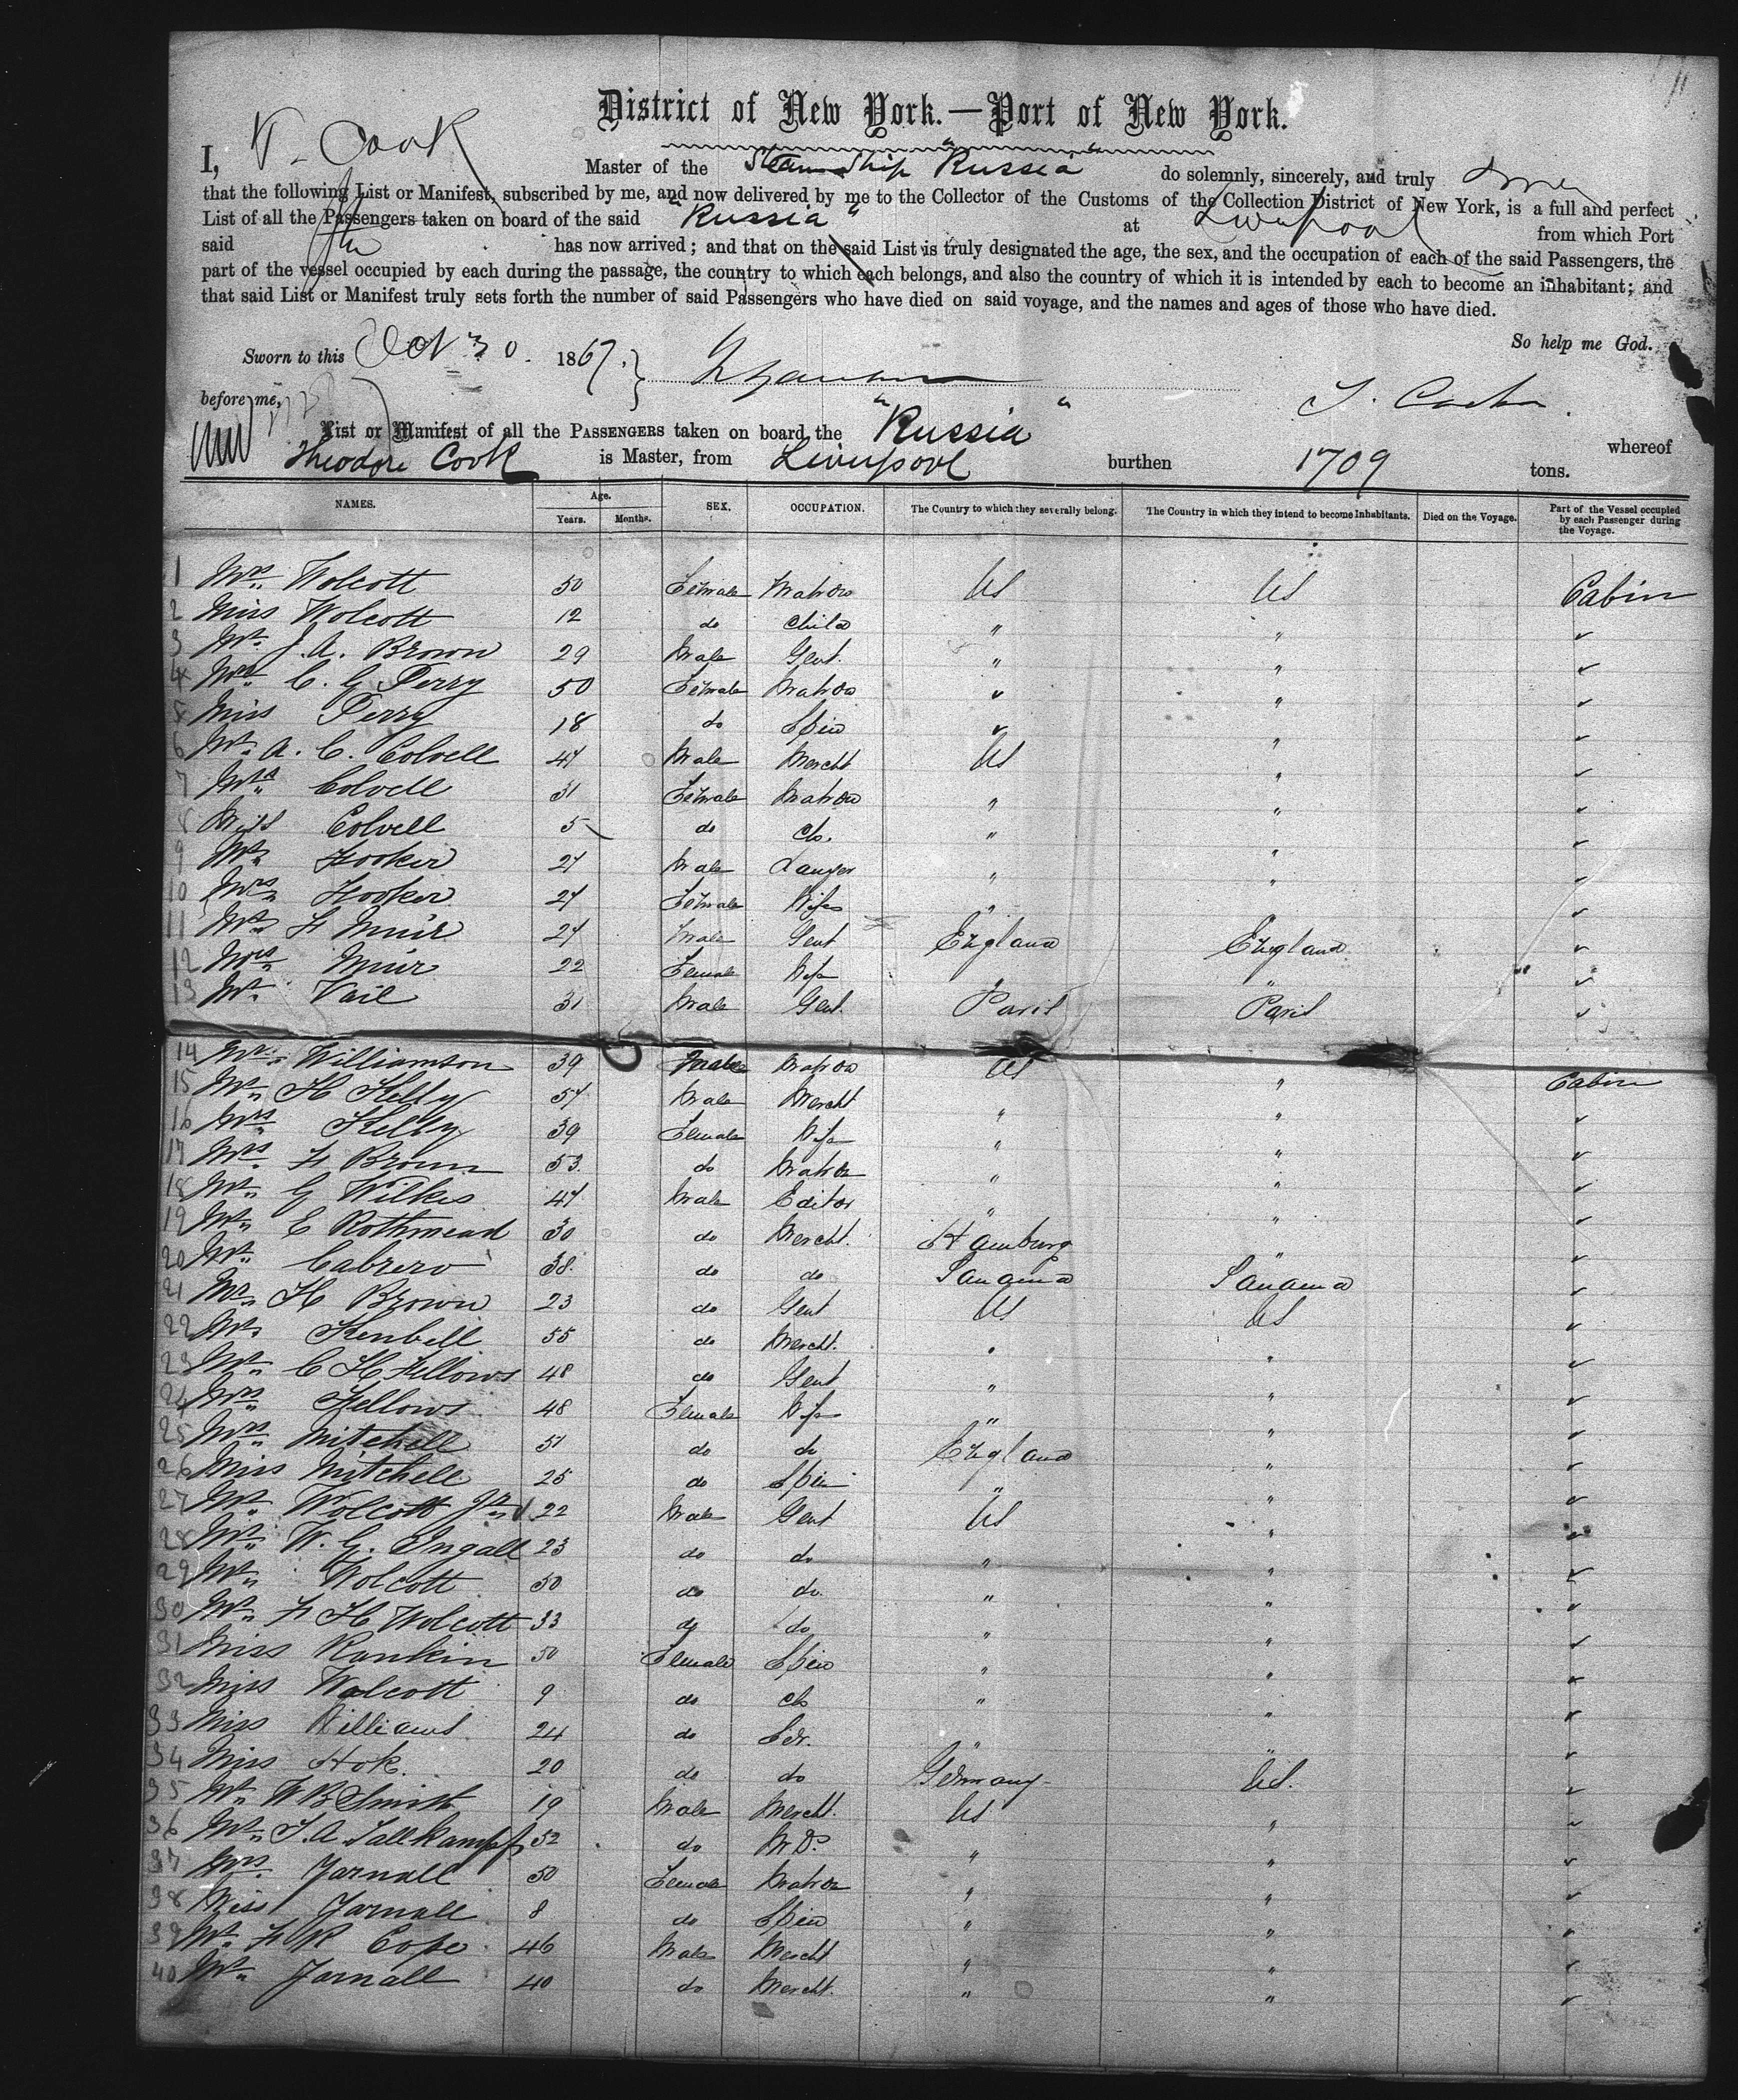 District of New York.—Port of New York.
I, T. Cook Master of the Steam Ship "Russia" do solemnly, sincerely, and truly swear
that the following List or Manifest, subscribed by me, and now delivered by me to the Collector of the Customs of the Collection District of New York, is a full and perfect
List of all the Passengers taken on board of the said "Russia" at Liverpool from which Port
said Ship has now arrived; and that on the said List is truly designated the age, the sex, and the occupation of each of the said Passengers, the
part of the vessel occupied by each during the passage, the country to which each belongs, and also the country of which it is intended by each to become an inhabitant; and
that said List or Manifest truly sets forth the number of said Passengers who have died on said voyage, and the names and ages of those who have died.
So help me God.
Sworn to this Oct 30. 1867.
before me, T. Cook.
List or Manifest of all the PASSENGERS taken on board the "Russia" whereof
Theodore Cook is Master, from Liverpool burthen 1709 tons.
NAMES. Age. Years. Months. SEX. OCCUPATION. The Country to which they severally belong. The Country in which they intend to become Inhabitants. Died on the Voyage. Part of the Vessel occupied by each Passenger during the Voyage.
1 Mrs Wolcott 50 Female Matron US US Cabin
2 Miss Wolcott 12 do child " " "
3 Mr. J. A. Brown 29 Male Gent. " " "
4 Mrs C. G Perry 50 Female Matron " " "
5 Miss Perry 18 do Spin " " "
6 Mr. A. C. Colvell 47 Male Mercht US " "
7 Mrs Colvell 31 Female Matron " " "
8 Miss Colvell 5 do ch. " " "
9 Mr. Hooker 27 Male Lawyer " " "
10 Mrs Hooker 27 Female Wife " " "
11 Mr. H Muir 27 Male Gent England England "
12 Mrs Muir 22 Female Wife " " "
13 Mr. Vail 31 Male Gent. Paris Paris "
14 Williamson 39 Matron US " Cabin
15 Mr. H Kelly 57 Male Mercht " " "
16 Mrs Kelly 39 Female Wife " " "
17 Mrs. H Brown 53. do Matron " " "
18 Mr. G Wilkes 47 Male Editor " " "
19 Mr. E Rothmead 30 do Mercht. Hamburg " "
20 Mr. Cabrero 38. do do Panama Panama "
21 Mr. H Brown 23 do Gent US US "
22 Mr. Kenbell 55 do Mercht. " " "
23 Mr. C H Fellows 48 do Gent " " "
24 Mrs Fellows 48 Female Wife " " "
25 Mrs. Mitchell 51 do do England " "
26 Miss Mitchell 25 do Spin " " "
27 Mr. Wolcott Jr 22 Male Gent US " "
28 Mr. W. G. Ingall 23 do do " " "
29 Mr. Wolcott 50 do do. " " "
30 Mr. F H Wolcott 33 do do " " "
31 Miss Rankin 30 Female Spin " " "
32 Miss Wolcott 9 do ch " " "
33 Miss Williams 24 do Sr. " " "
34 Miss Hok. 20 do do Germany US. "
35 Mr. W B Smith 19 Male Mercht. US " "
36 Mr. T. A. Tallkampf 52 do M.D. " " "
37 Mrs. Yarnall 50 Female Matron " " "
38 Miss Yarnall 8 do Spin " " "
39 Mr. F R Cope. 46 Male Mercht " " "
40 Mr. Yarnall 40 do Mercht. " " "